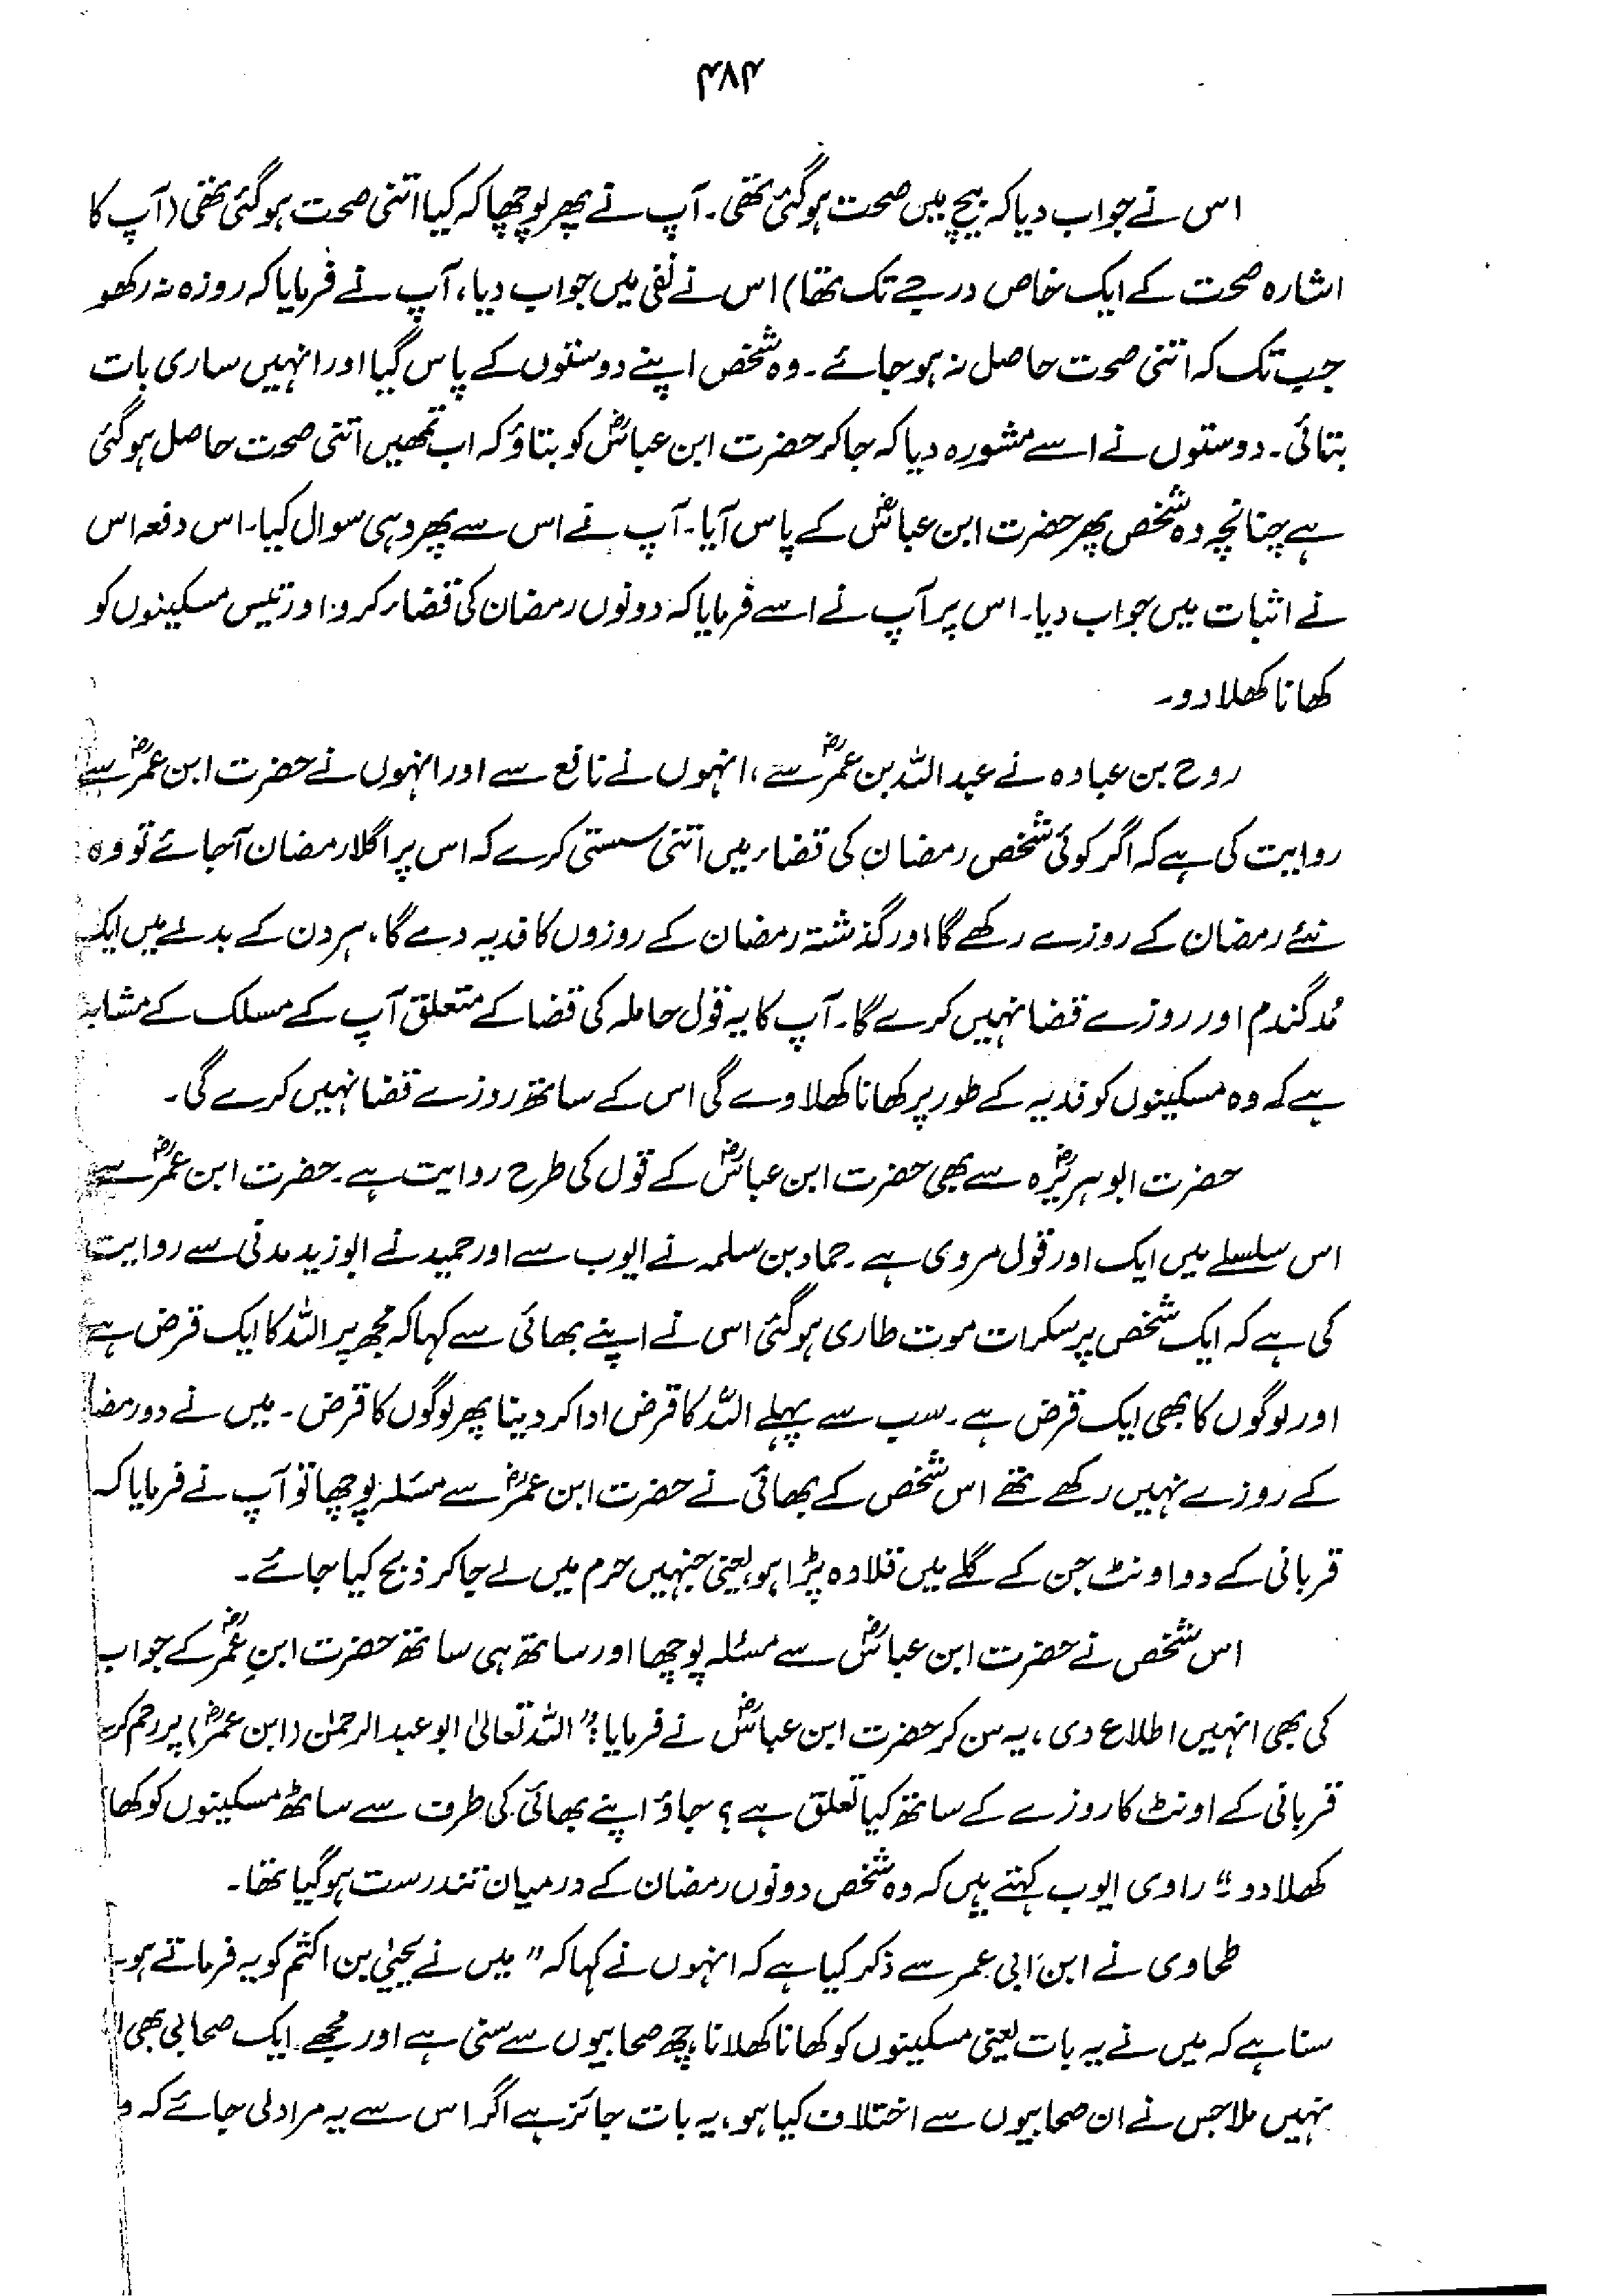 ۴۸۴
اس نے جواب دیا کہ بیچ میں صحت ہوگئی تھی۔ آپ نے پھر پوچھا کہ کیا اتنی صحت ہوگئی تھی (آپ کا
اشارہ صحت کے ایک خاص درجے تک تھا) اس نے نفی میں جواب دیا، آپ نے فرمایا کہ روزہ نہ رکھو
جب تک کہ اتنی صحت حاصل نہ ہو جائے۔ وہ شخص اپنے دوستوں کے پاس گیا اور انہیں ساری بات
بتائی۔ دوستوں نے اسے مشورہ دیا کہ جا کر حضرت ابن عباسؓ کو بتاؤ کہ اب تمھیں اتنی صحت حاصل ہوگئی
ہے چنانچہ وہ شخص پھر حضرت ابن عباسؓ کے پاس آیا۔ آپ نے اس سے پھر وہی سوال کیا۔ اس دفعہ اس
نے اثبات میں جواب دیا۔ اس پر آپ نے اسے فرمایا کہ دونوں رمضان کی قضاء کرو اور تیس مسکینوں کو
کھانا کھلا دو۔
روح بن عبادہ نے عبداللہ بن عمرؓ سے، انہوں نے نافع سے اور انہوں نے حضرت ابن عمرؓ سے
روایت کی ہے کہ اگر کوئی شخص رمضان کی قضاء میں اتنی سستی کرے کہ اس پر اگلا رمضان آجائے تو وہ
نئے رمضان کے روزے رکھے گا اور گذشتہ رمضان کے روزوں کا فدیہ دے گا، ہر دن کے بدلے میں ایک
مُد گندم اور روزے قضا نہیں کرے گا۔ آپ کا یہ قول حاملہ کی قضا کے متعلق آپ کے مسلک کے مشابہ
ہے کہ وہ مسکینوں کو فدیہ کے طور پر کھانا کھلاوے گی اس کے ساتھ روزے قضا نہیں کرے گی۔
حضرت ابوہریرہؓ سے بھی حضرت ابن عباسؓ کے قول کی طرح روایت ہے۔ حضرت ابن عمرؓ سے
اس سلسلے میں ایک اور قول مروی ہے۔ حماد بن سلمہ نے ایوب سے اور حمید نے ابوزید مدنی سے روایت
کی ہے کہ ایک شخص پر سکرات موت طاری ہوگئی اس نے اپنے بھائی سے کہا کہ مجھ پر اللہ کا ایک قرض ہے
اور لوگوں کا بھی ایک قرض ہے۔ سب سے پہلے اللہ کا قرض ادا کر دینا پھر لوگوں کا قرض۔ میں نے دو رمضا
کے روزے نہیں رکھے تھے اس شخص کے بھائی نے حضرت ابن عمرؓ سے مسئلہ پوچھا تو آپ نے فرمایا کہ
قربانی کے دو اونٹ جن کے گلے میں قلادہ پڑا ہو یعنی جنہیں حرم میں لے جا کر ذبح کیا جائے۔
اس شخص نے حضرت ابن عباسؓ سے مسئلہ پوچھا اور ساتھ ہی ساتھ حضرت ابنِ عمرؓ کے جواب
کی بھی انہیں اطلاع دی، یہ سن کر حضرت ابن عباسؓ نے فرمایا: "اللہ تعالیٰ ابو عبدالرحمٰن (ابن عمرؓ) پر رحم کرے
قربانی کے اونٹ کا روزے کے ساتھ کیا تعلق ہے؟ جاؤ اپنے بھائی کی طرف سے ساٹھ مسکینوں کو کھا
کھلا دو" راوی ایوب کہتے ہیں کہ وہ شخص دونوں رمضان کے درمیان تندرست ہوگیا تھا۔
طحاوی نے ابن ابی عمر سے ذکر کیا ہے کہ انہوں نے کہا کہ "میں نے یحییٰ بن اکثم کو یہ فرماتے ہو
سنا ہے کہ میں نے یہ بات یعنی مسکینوں کو کھانا کھلانا، چھ صحابیوں سے سنی ہے اور مجھے ایک صحابی بھی
نہیں ملا جس نے ان صحابیوں سے اختلاف کیا ہو، یہ بات جائز ہے اگر اس سے یہ مراد لی جائے کہ و